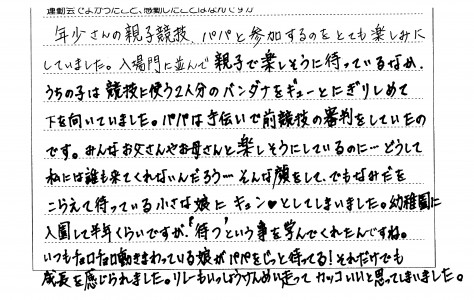 運動会でよかったこと、感動したことはなんですか
年少さんの親子競技、パパと参加するのをとても楽しみに
していました。入場門に並んで親子で楽しそうに待っているなか、
うちの子は競技に使う2人分のバンダナをギューとにぎりしめて
下を向いていました。パパは手伝いで前競技の審判をしていたの
です。みんなお父さんやお母さんと楽しそうにしているのに…どうして
私には誰も来てくれないんだろう…そんな顔をして、でもなみだを
こらえて待っている小さな娘にキュン♥としてしまいました。幼稚園に
入園して半年くらいですが、「待つ」という事を学んでくれたんですね。
いつもチョロチョロ動きまわっている娘がパパをじっと待ってる!それだけでも
成長を感じられました。リレーもいっしょうけんめい走ってカッコいいと思ってしまいました。